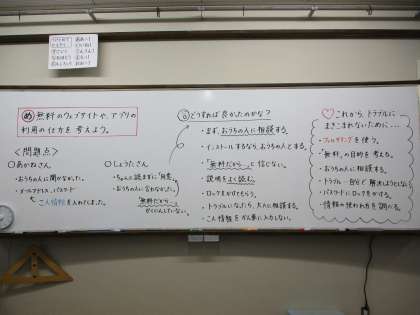 め 無料のウェブサイトや、アプリの
利用の仕方を考えよう。
＜問題点＞
○あかねさん
・おうちの人に聞かなかった。
・メールアドレス、パスワード
こじん情報を入れてしまった。
○しょうたさん
・ちゃんと読まずに「同意」
・おうちの人に言わなかった。
「無料だから…」
かくにんしない。
◎どうすれば良かったのかな？
・まず、おうちの人に相談する。
・インストールするなら、おうちの人とする。
・「無料だから…」と信じない。
・説明をよく読む。
・ロックをかけてもらう。
・トラブルになったら、大人に相談する。
・こじん情報をかん単に入力しない。
♡これから、トラブルに
まきこまれないために…
・フィルタリングを使う。
・「無料」の目的を考える。
・おうちの人に相談する。
・トラブル→自分で解決しようとしない
・パスワードにロックをかける。
・情報の使われ方を調べる。